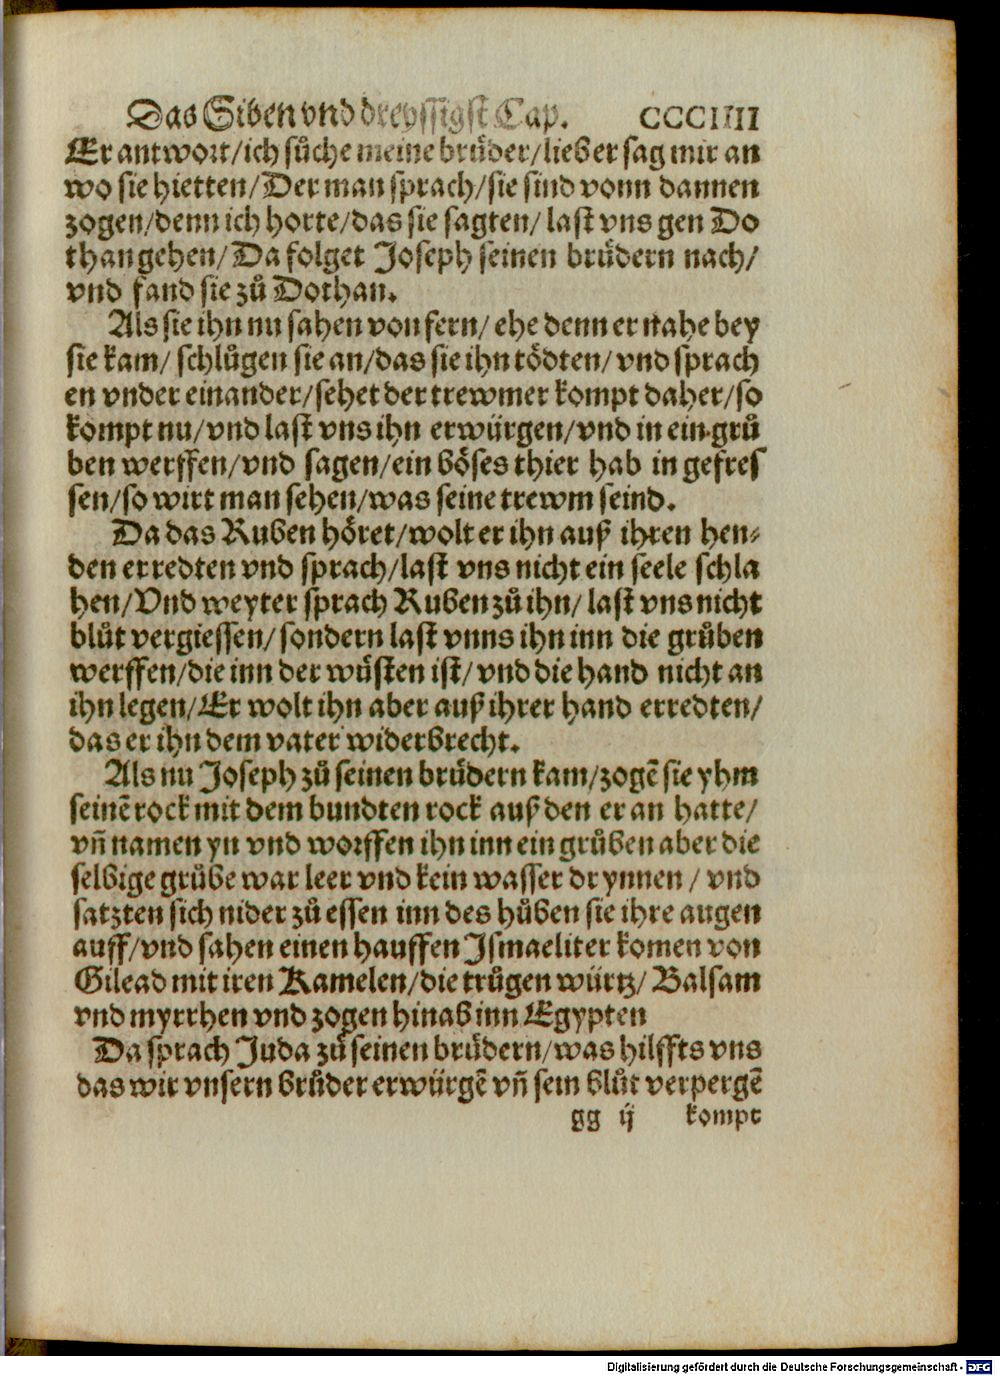 Das Siben vnd dreyssigst Cap. CCCIIII
Er antwort/ich sůche meine brůder/lieber sag mir an
wo sie hietten/Der man sprach/sie sind vonn dannen
zogen/denn ich horte/das sie sagten/ last vns gen Do
than gehen/ Da folget Joseph seinen brůdern nach/
vnd fand sie zů Dothan.
Als sie ihn nu sahen von fern/ ehe denn er nahe bey
sie kam/ schlůgen sie an/das sie ihn tödten/ vnd sprach
en vnder einander/sehet der trewmer kompt daher/so
kompt nu/vnd last vns ihn erwürgen/vnd in ein grů
ben werffen/vnd sagen/ein böses thier hab in gefres
sen/so wirt man sehen/was seine trewm seind.
Da das Ruben höret/wolt er ihn auß ihren hen⸗
den erredten vnd sprach/last vns nicht ein seele schla
hen/Vnd weyter sprach Ruben zů ihn/ last vns nicht
blůt vergiessen/ sondern last vnns ihn inn die grůben
werffen/die inn der wůsten ist/ vnd die hand nicht an
ihn legen/Er wolt ihn aber auß ihrer hand erredten/
das er ihn dem vater widerbrecht.
Als nu Joseph zů seinen brůdern kam/zogẽ sie yhm
seinẽ rock mit dem bundten rock auß den er an hatte/
vñ namen yn vnd worffen ihn inn ein grůben aber die
selbige grůbe war leer vnd kein wasser drynnen / vnd
satzten sich nider zů essen inn des hůben sie ihre augen
auff/vnd sahen einen hauffen Jsmaeliter komen von
Gilead mit iren Kamelen/die trůgen würtz/ Balsam
vnd myrrhen vnd zogen hinab inn Egypten
Da sprach Juda zů seinen brůdern/was hilffts vns
das wir vnsern brůder erwürgẽ vñ sein blůt verpergẽ
gg ij kompt
Digitalisierung gefördert durch die Deutsche Forschungsgemeinschaft - DFG